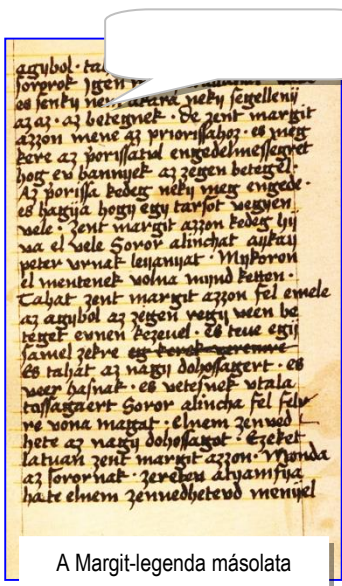 agybol · 
sorprok Jgen
es senky nem akara neky segellenÿ
azaz · az betegnek · de zent margit
azzon mene az priorissahoz · es meg
kere az porissatvl engedelmesseget
hog ev bannyek az zegen beteggel
Az porissa kedeg neky meg engede ·
es hagÿa hogÿ egÿ tarsot vegÿen
vele · zent margit azzon kedeg hÿ
va el vele Soror alinchat aÿkaÿ
peter vrnak leÿanÿat · Mÿkoron
el mentenek volna mÿnd ketten ·
Tahat zent margit azzon fel emele
az agÿbol az zegen vegÿ veen be
teget evnen kezeuel · Es teue egÿ
samel zekre
Es tahat az nagÿ dohossagert · es
veer hasnak · es vetesnek vtala
tossagaert Soror alincha fel felv
re vona magat · elnem zenved
hete az nagÿ dohossagot · Ezeket
latuan zent margit azzon · Monda
az sorornak · zeretev atÿamfÿa
ha te elnem zennedhetevd menÿel
A Margit-legenda másolata